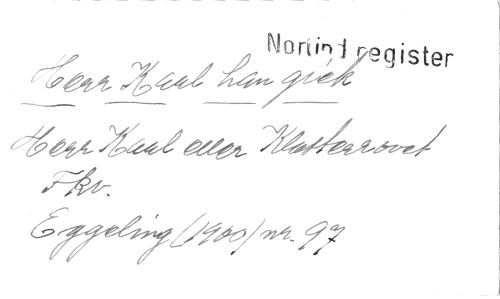 Nortind register
Herr Karl han gick
Herr Karl eller Klosterrovet
Fkv.
Eggeling (1900) nr. 97